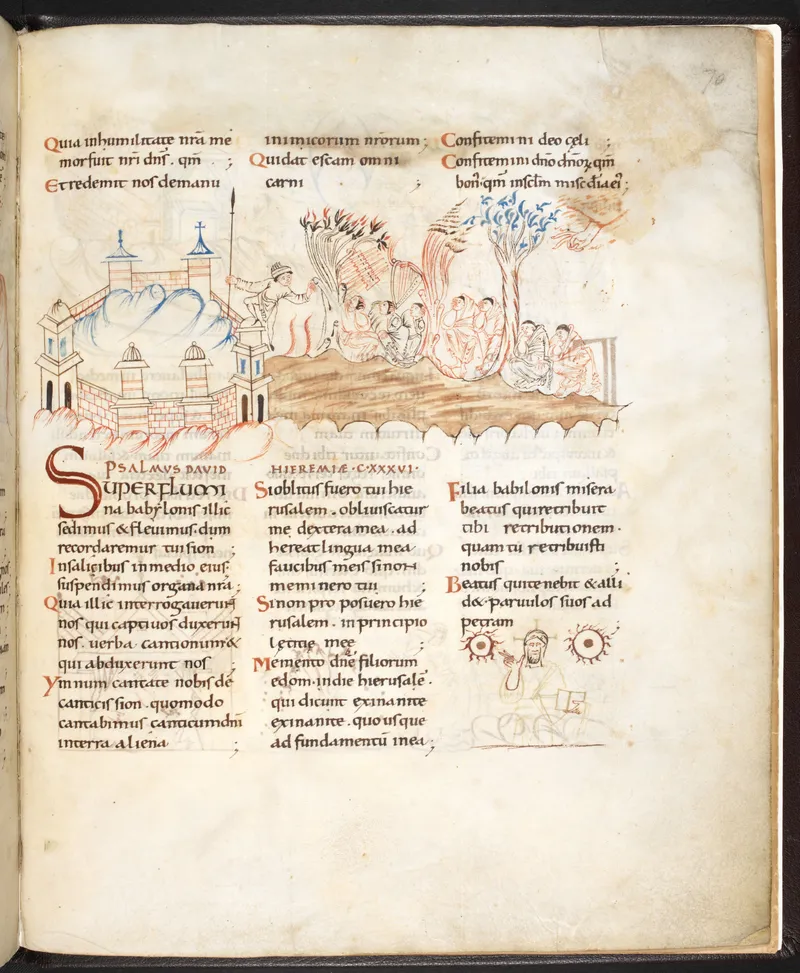 70
Quia inhumilitate nr̄a me
morfuit nr̄i dn̄s . qm̄ . ;
Et redemit nos demanu
inimicorum nr̄orum ;
Qui dat escam omni
carni . ;
Confitemini deo cęli ;
Confitemini dn̄o dn̄oꝝ qm̄
bon' qm̄ insclm̄ misc̄dia ei' ;
PSALMVS DAVID
SUPER FLUMI
na babylonis illic
sedimus & fleuimus . dum
recordaremur tui sion ;
In salicibus in medio eius .
suspendimus organa nr̄a ;
Quia illic interrogauerunt
nos qui captiuos duxerunt
nos . uerba cantionum &
qui abduxerunt nos ;
Ymnum cantate nobis dē
canticis sion . quomodo
cantabimus canticum dn̄i
in terra aliena ;
HIEREMIÆ · C·XXXVI ·
Si oblitus fuero tui hie
rusalem . obliuiscatur
me dextera mea . ad
hereat lingua mea
faucibus meis si non
meminero tui ;
Si non proposuero hie
rusalem . in principio
lętitię meę ;
Memento dn̄e filiorum
edom . in die hierusalē .
qui dicunt exinanite
exinanite . quo usque
ad fundamentū in ea ;
Filia babilonis misera
beatus qui retribuit
tibi retributionem .
quam tu retribuisti
nobis ;
Beatus qui tenebit & alli
d& paruulos suos ad
petram ;